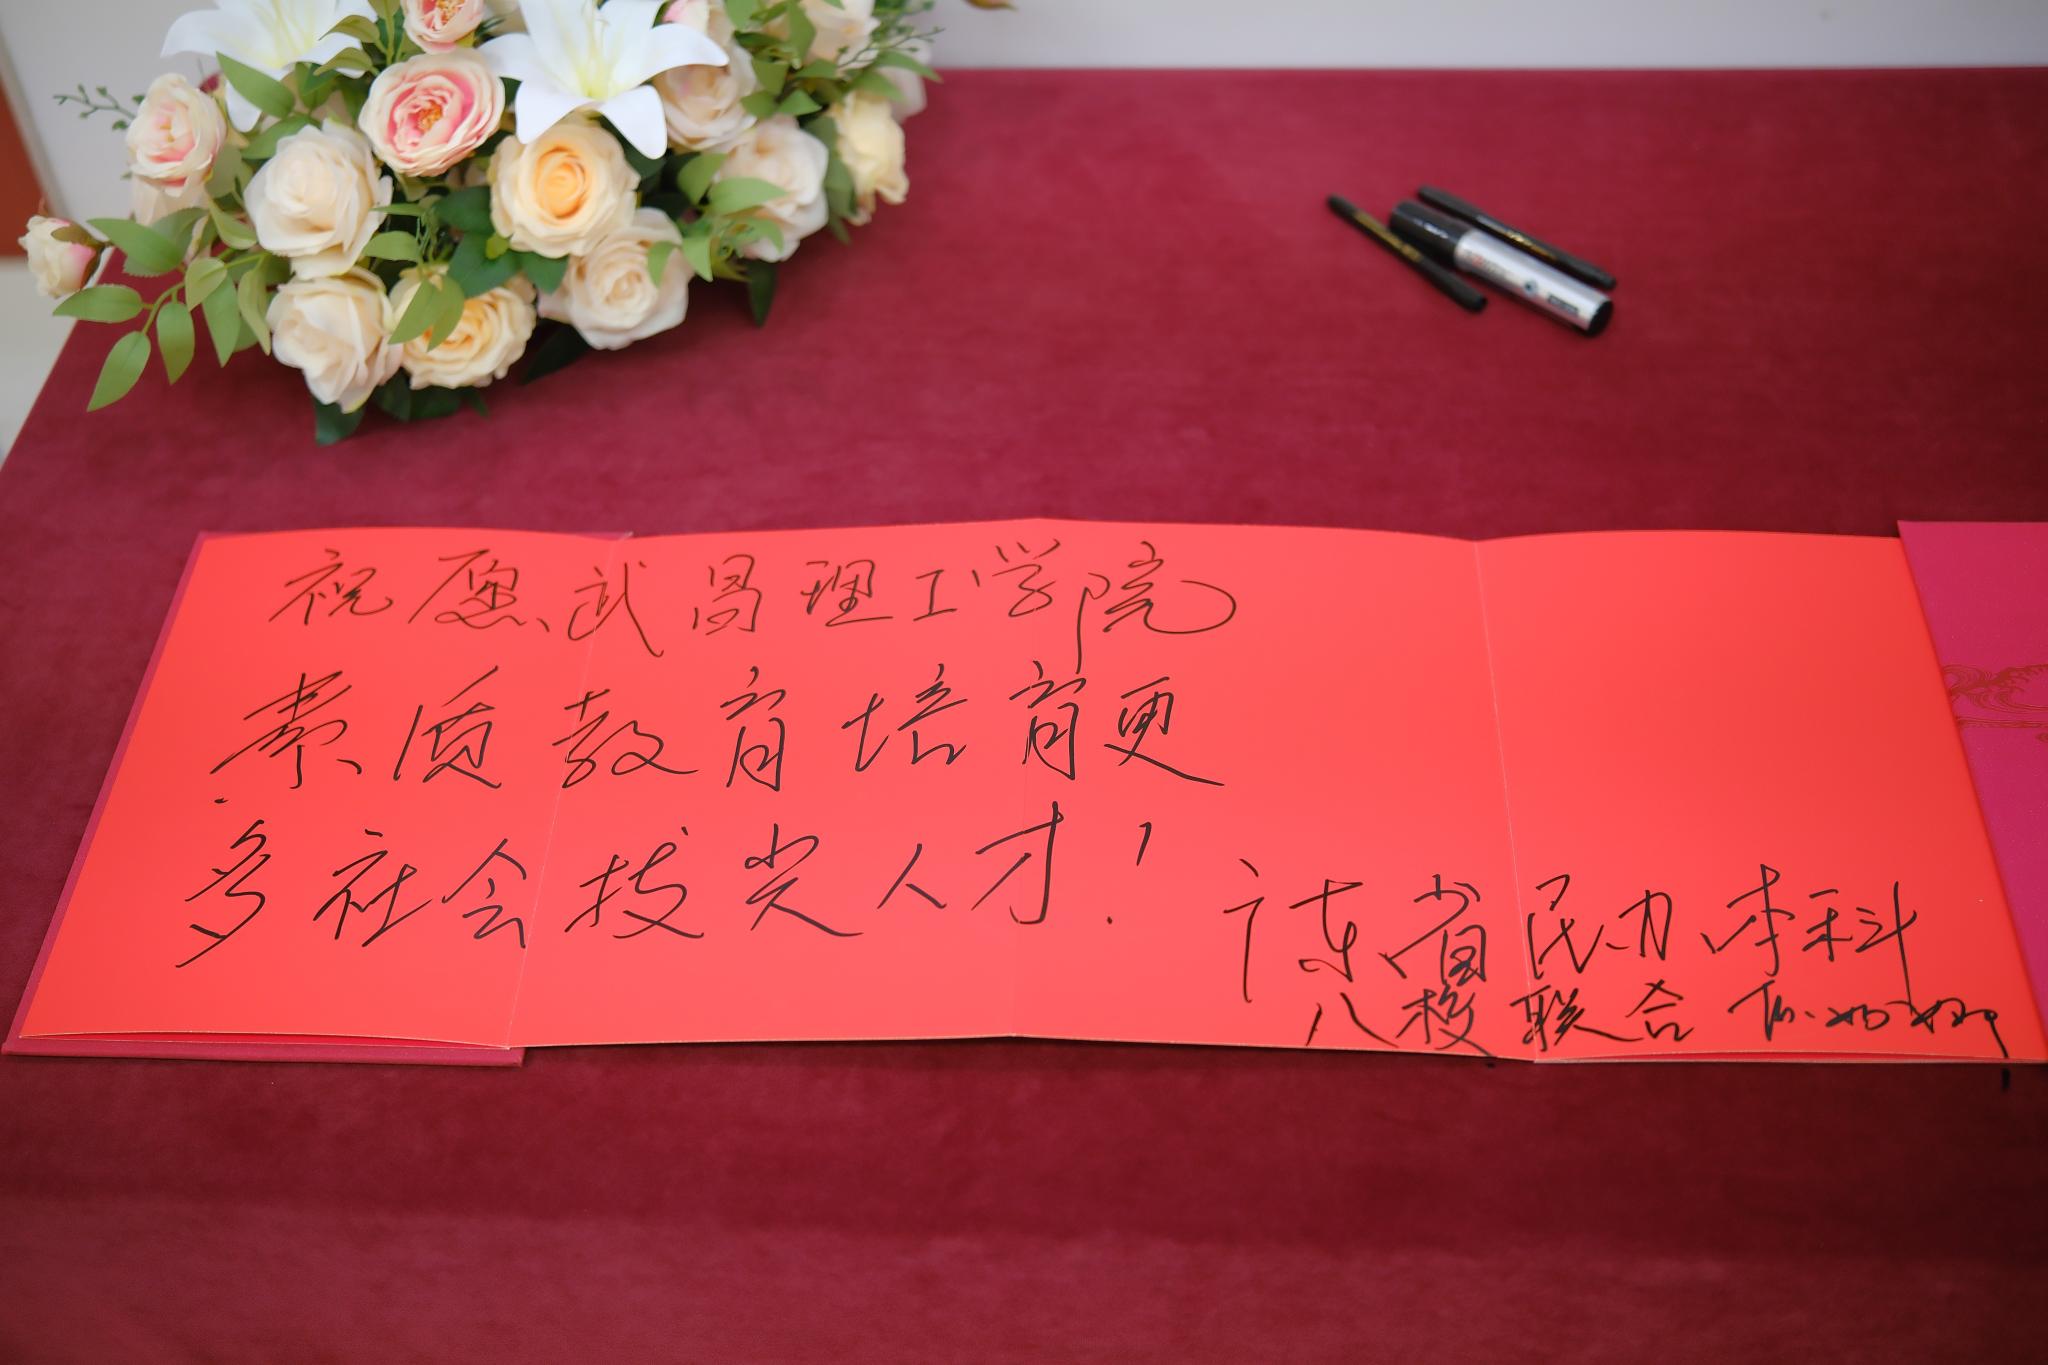 祝愿武昌理工学院
素质教育培育更
多社会拔尖人才！
广东省民办本科
八校联合